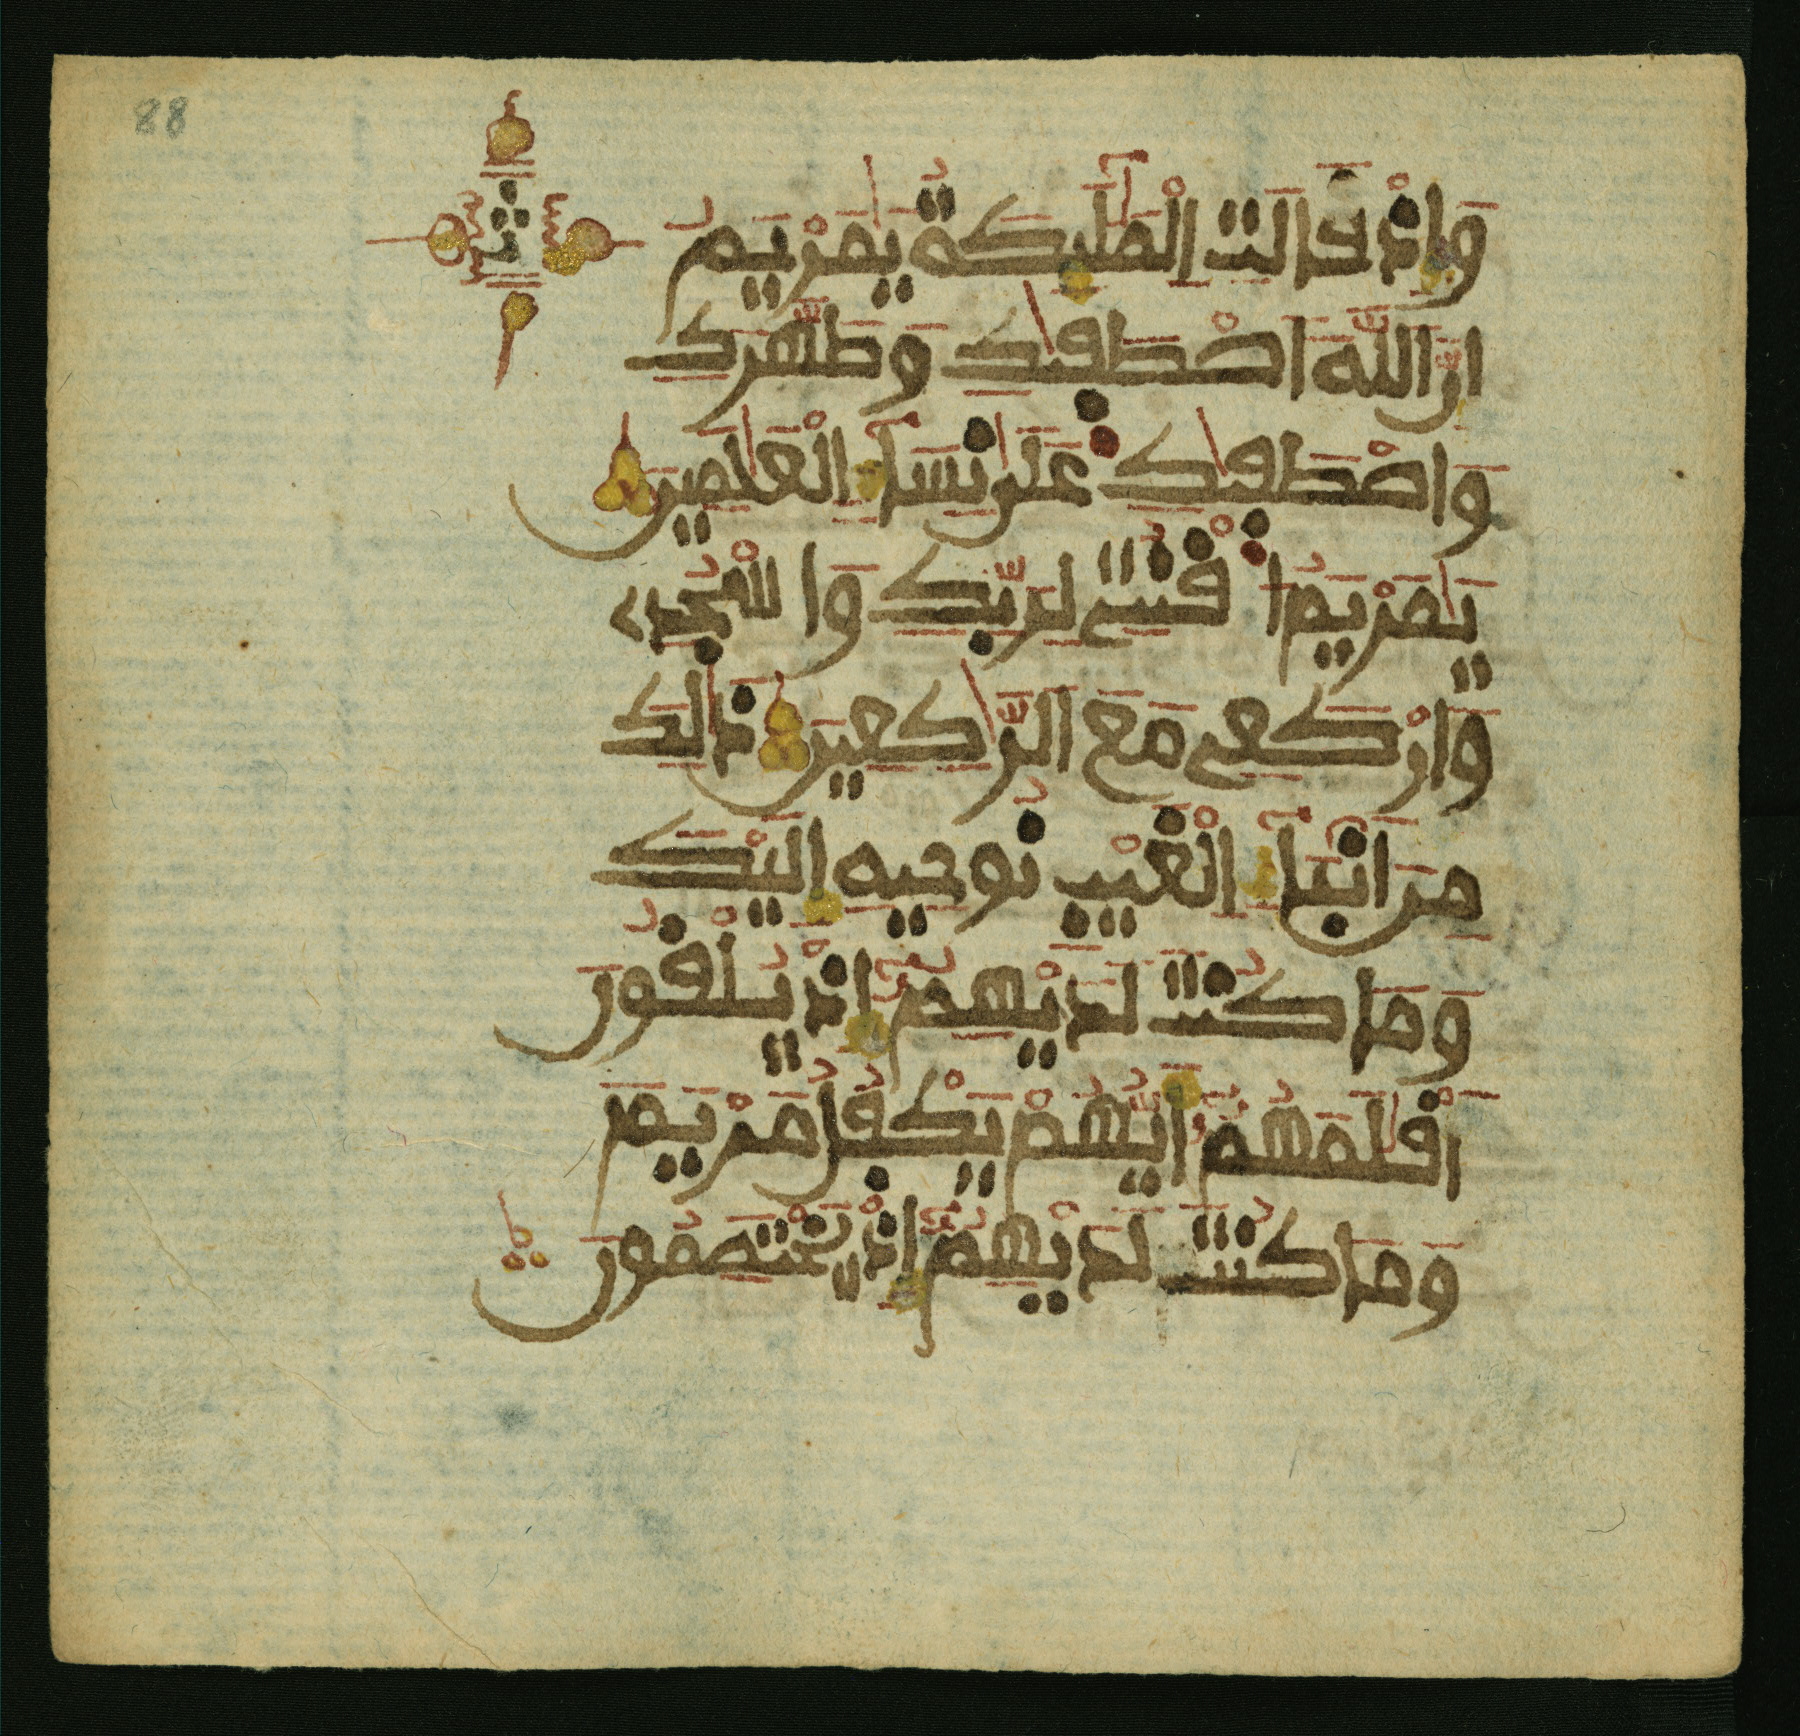 88
وَإِذْ قَالَتِ الْمَلَٰٓئِكَةُ يَٰمَرْيَمُ
إِنَّ اللَّهَ اصْطَفَىٰكِ وَطَهَّرَكِ
وَاصْطَفَىٰكِ عَلَىٰ نِسَآءِ الْعَٰلَمِينَ
يَٰمَرْيَمُ اقْنُتِى لِرَبِّكِ وَاسْجُدِى
وَارْكَعِى مَعَ الرَّٰكِعِينَ ذَٰلِكَ
مِنْ أَنۢبَآءِ الْغَيْبِ نُوحِيهِ إِلَيْكَ
وَمَا كُنتَ لَدَيْهِمُۥٓ إِذْ يُلْقُونَ
أَقْلَٰمَهُمُۥٓ أَيُّهُمْ يَكْفُلُ مَرْيَمَ
وَمَا كُنتَ لَدَيْهِمُۥٓ إِذْ يَخْتَصِمُونَ